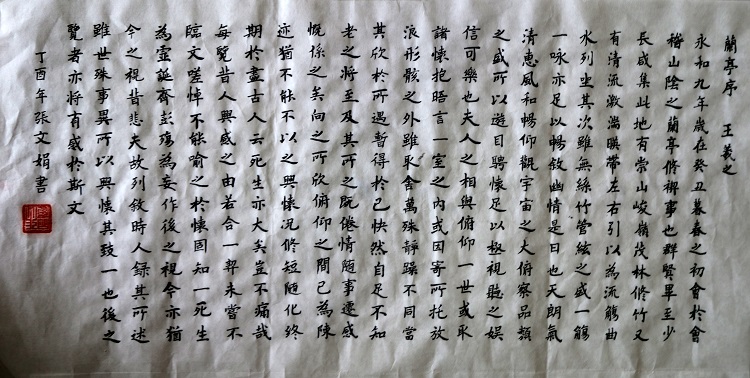 蘭亭序 王羲之
永和九年歲在癸丑暮春之初會於會
稽山陰之蘭亭脩禊事也群賢畢至少
長咸集此地有崇山峻嶺茂林脩竹又
有清流激湍暎帶左右引以為流觴曲
水列坐其次雖無絲竹管絃之盛一觴
一咏亦足以暢敘幽情是日也天朗氣
清惠風和暢仰觀宇宙之大俯察品類
之盛所以遊目騁懷足以極視聽之娛
信可樂也夫人之相與俯仰一世或取
諸懷抱晤言一室之內或因寄所托放
浪形骸之外雖取舍萬殊靜躁不同當
其欣於所遇暫得於己怏然自足不知
老之將至及其所之既倦情隨事遷感
慨係之矣向之所欣俯仰之間已為陳
迹猶不能不以之興懷況脩短隨化終
期於盡古人云死生亦大矣豈不痛哉
每覽昔人興感之由若合一契未嘗不
臨文嗟悼不能喻之於懷固知一死生
為虛誕齊彭殤為妄作後之視今亦猶
今之視昔悲夫故列敘時人錄其所述
雖世殊事異所以興懷其致一也後之
覽者亦將有感於斯文
丁酉年張文娟書